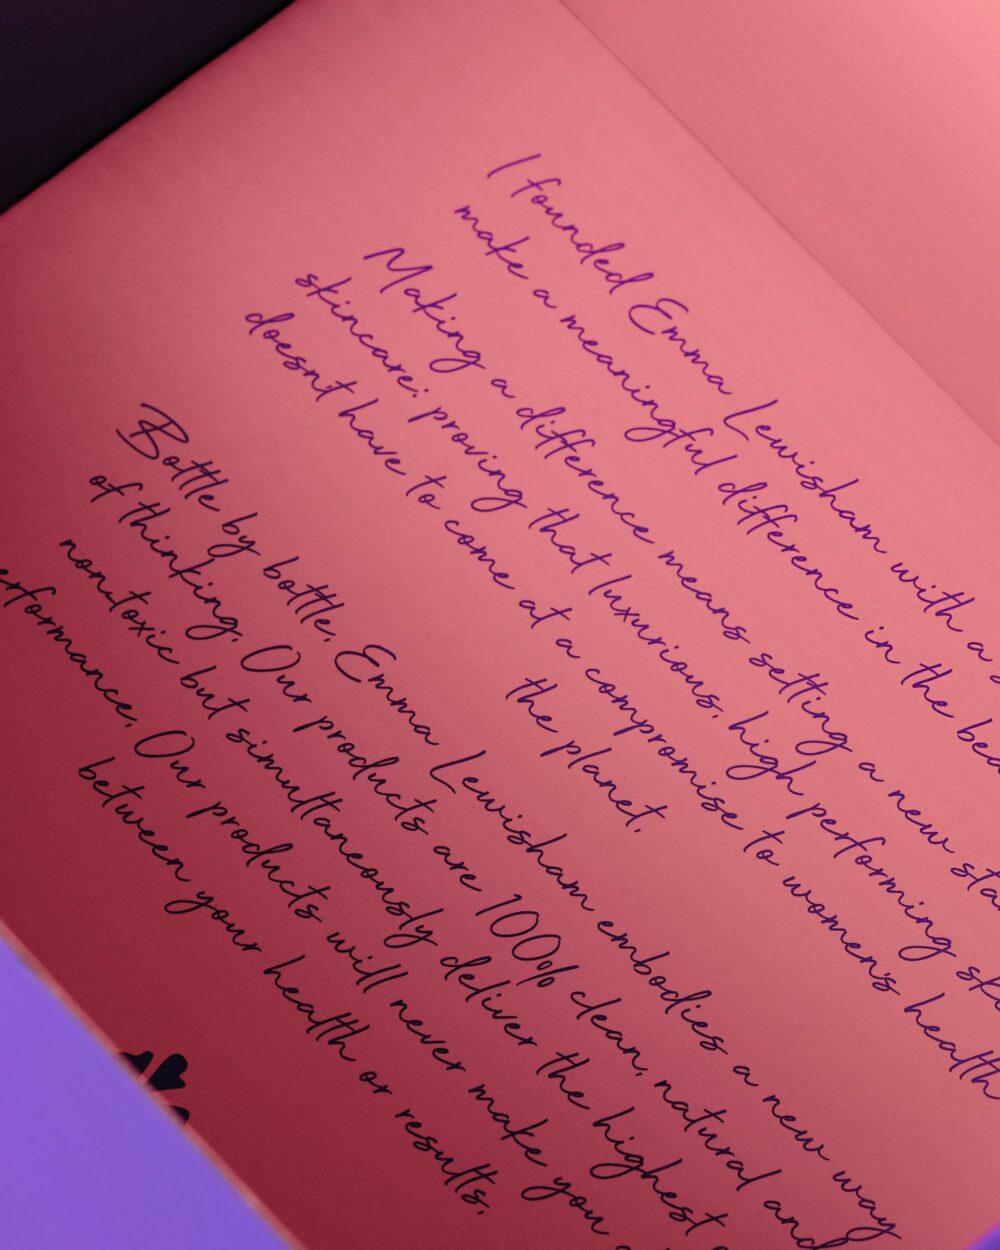 I founded Emma Lewisham with a
make a meaningful difference in the
Making a difference means setting a new
skincare: proving that luxurious, high performing
doesnt have to come at a compromise to women's health
the planet.
Bottle by bottle, Emma Lewisham embodies a new way
of thinking. Our products are 100% clean, natural and
non-toxic but simultaneously deliver the highest
erformance. Our products will never make you
between your health or results.